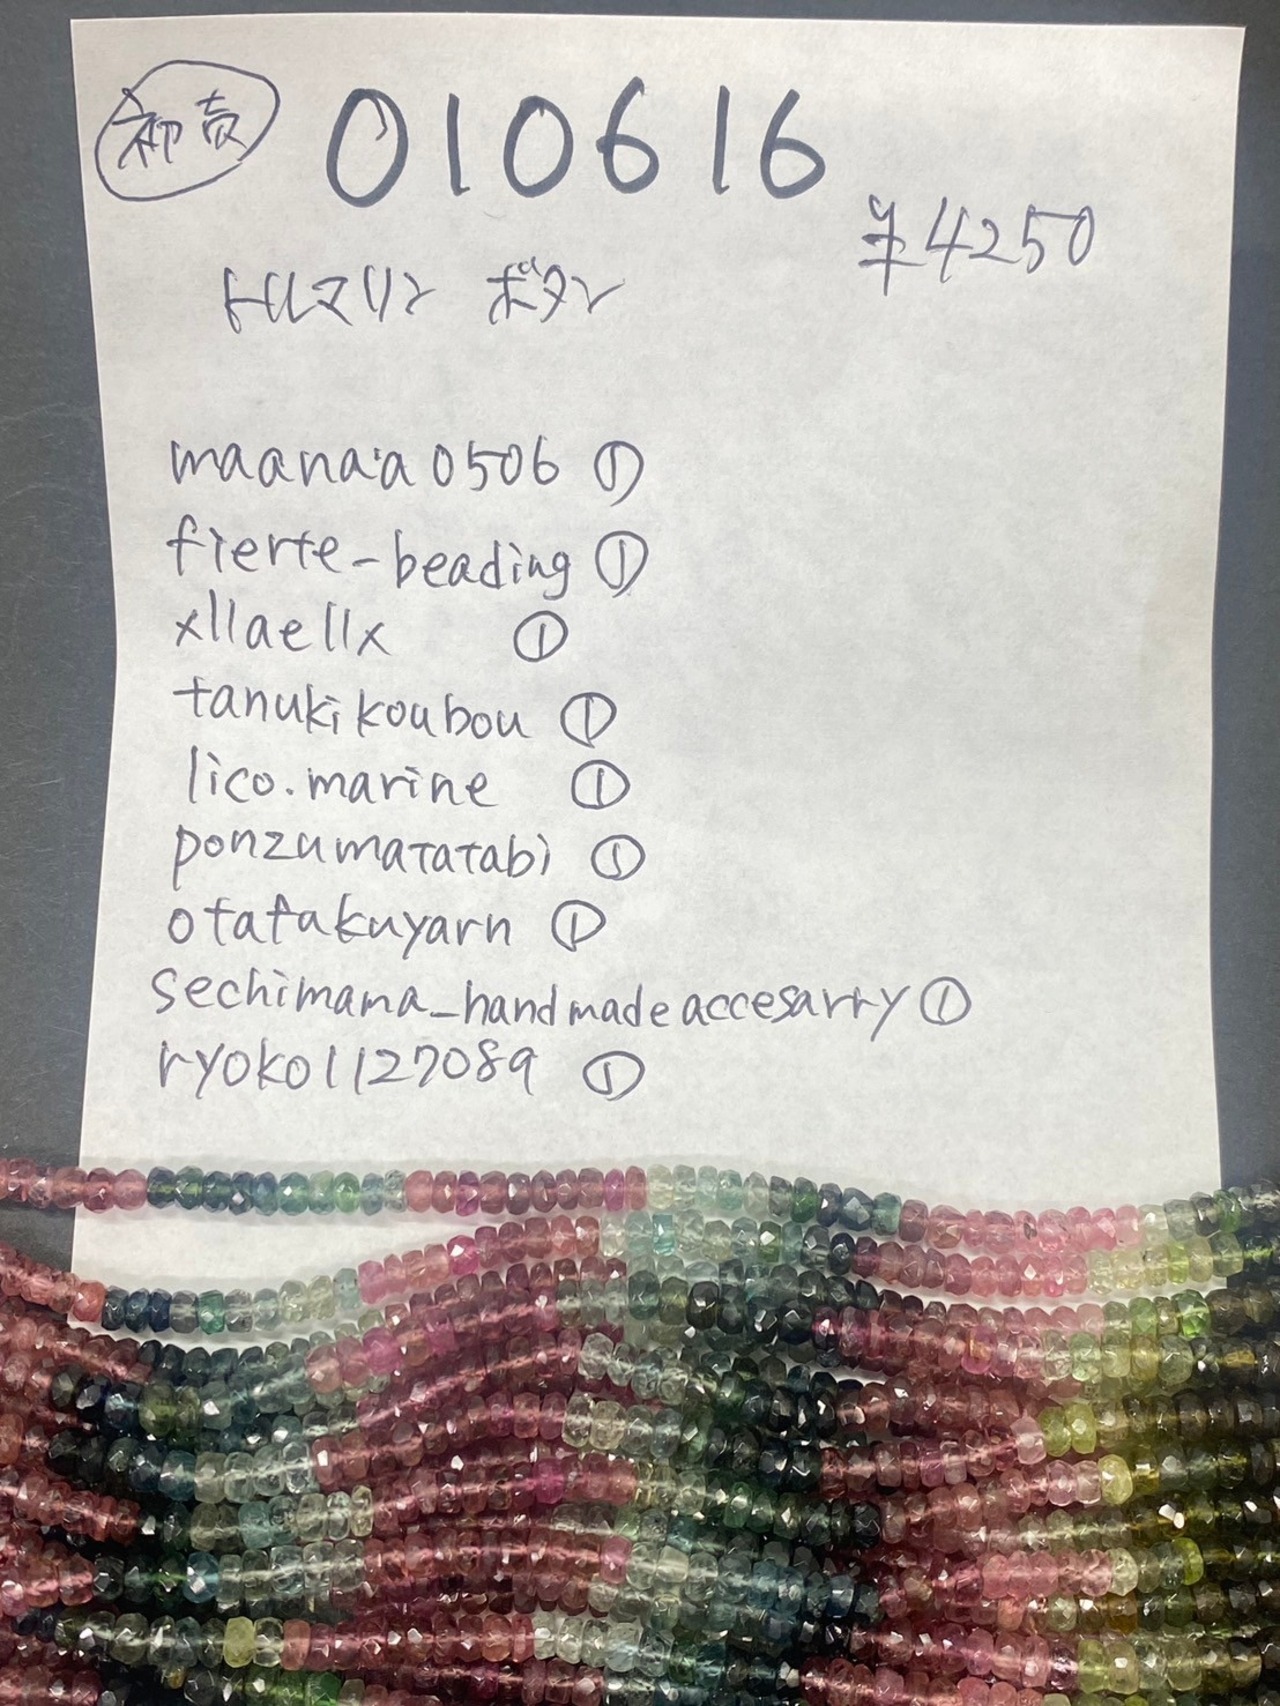 初売 010616
¥4250
トルマリン ボタン
maana.a0506 ①
fierte-beading ①
xllaellx ①
tanukikoubou ①
lico.marine ①
ponzumatatabi ①
otatakuyarn ①
sechimama_handmadeaccesarry ①
ryoko1127089 ①